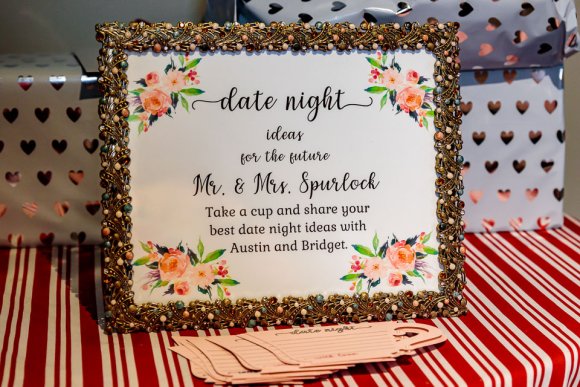 date night
ideas
for the future
Mr. & Mrs. Spurlock
Take a cup and share your
best date night ideas with
Austin and Bridget.
date night